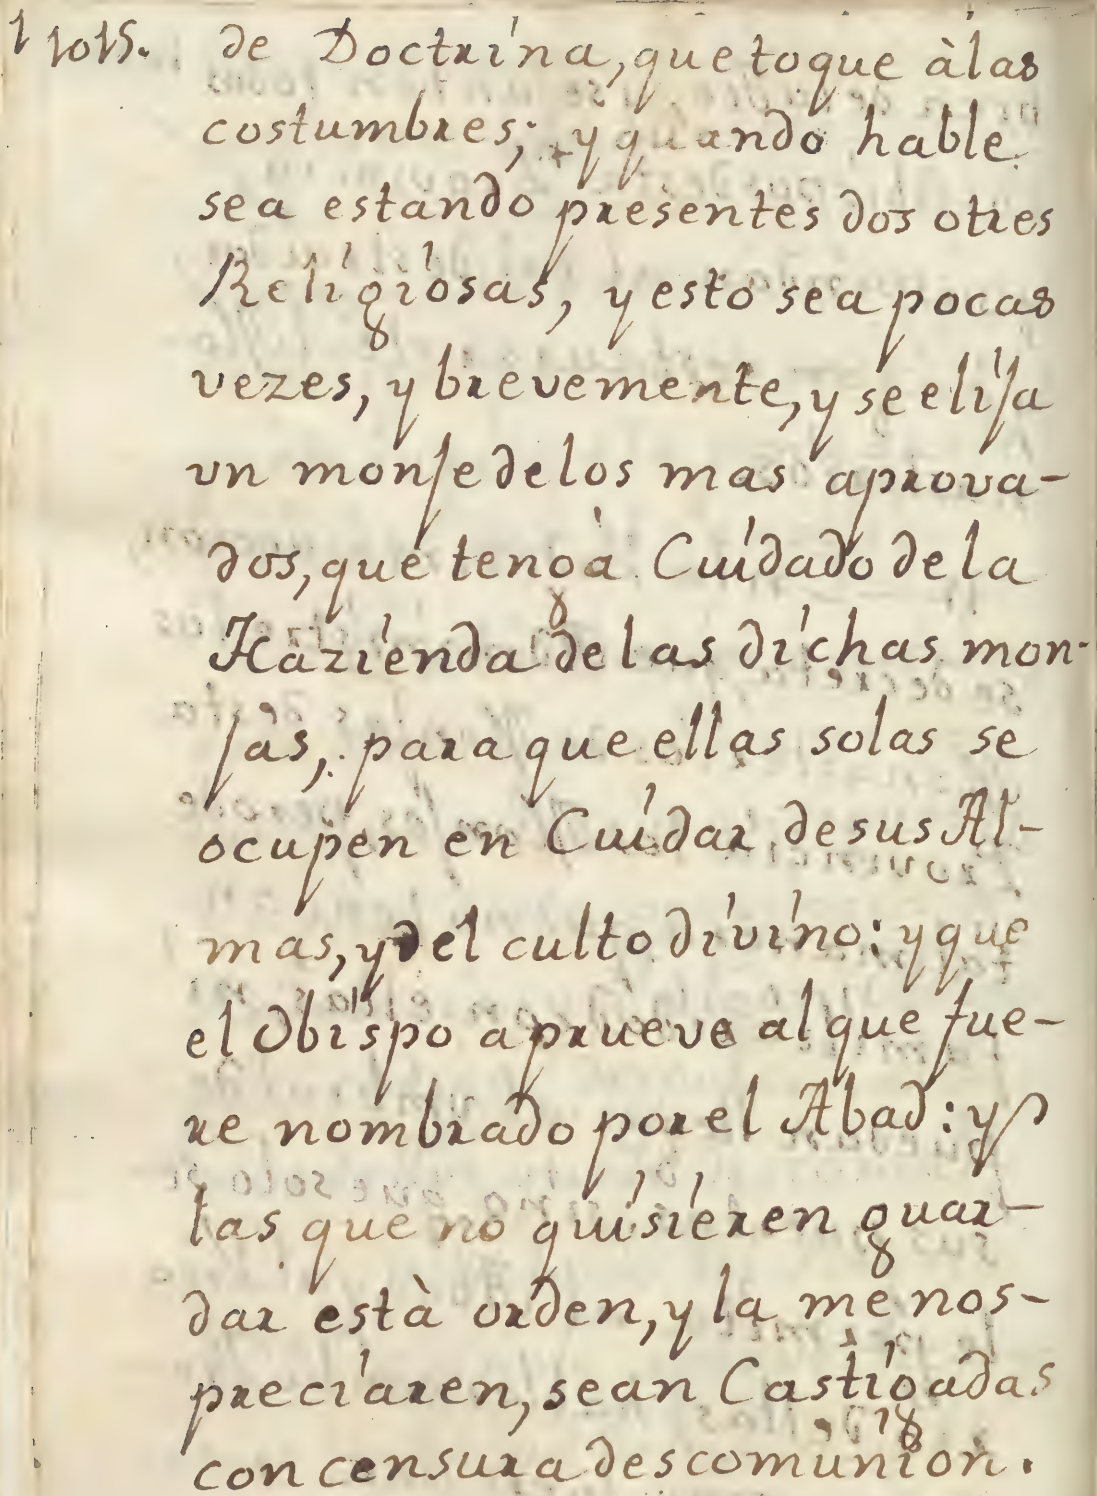 1015. de Doctrina, que toque à las
costumbres; y quando hable
sea estando presentes dos otres
Religiosas, y esto sea pocas
vezes, y brevemente, y se elija
vn monje de los mas aprova-
dos, que tenga Cuidado de la
Hazienda de las dichas mon-
jas, para que ellas solas se
ocupen en Cuidar de sus Al-
mas, y del culto divino: y que
el Obispo aprueve al que fue-
re nombrado por el Abad: y
las que no quisieren guar-
dar està orden, y la menos-
preciaren, sean Castigadas
con censura descomunion.